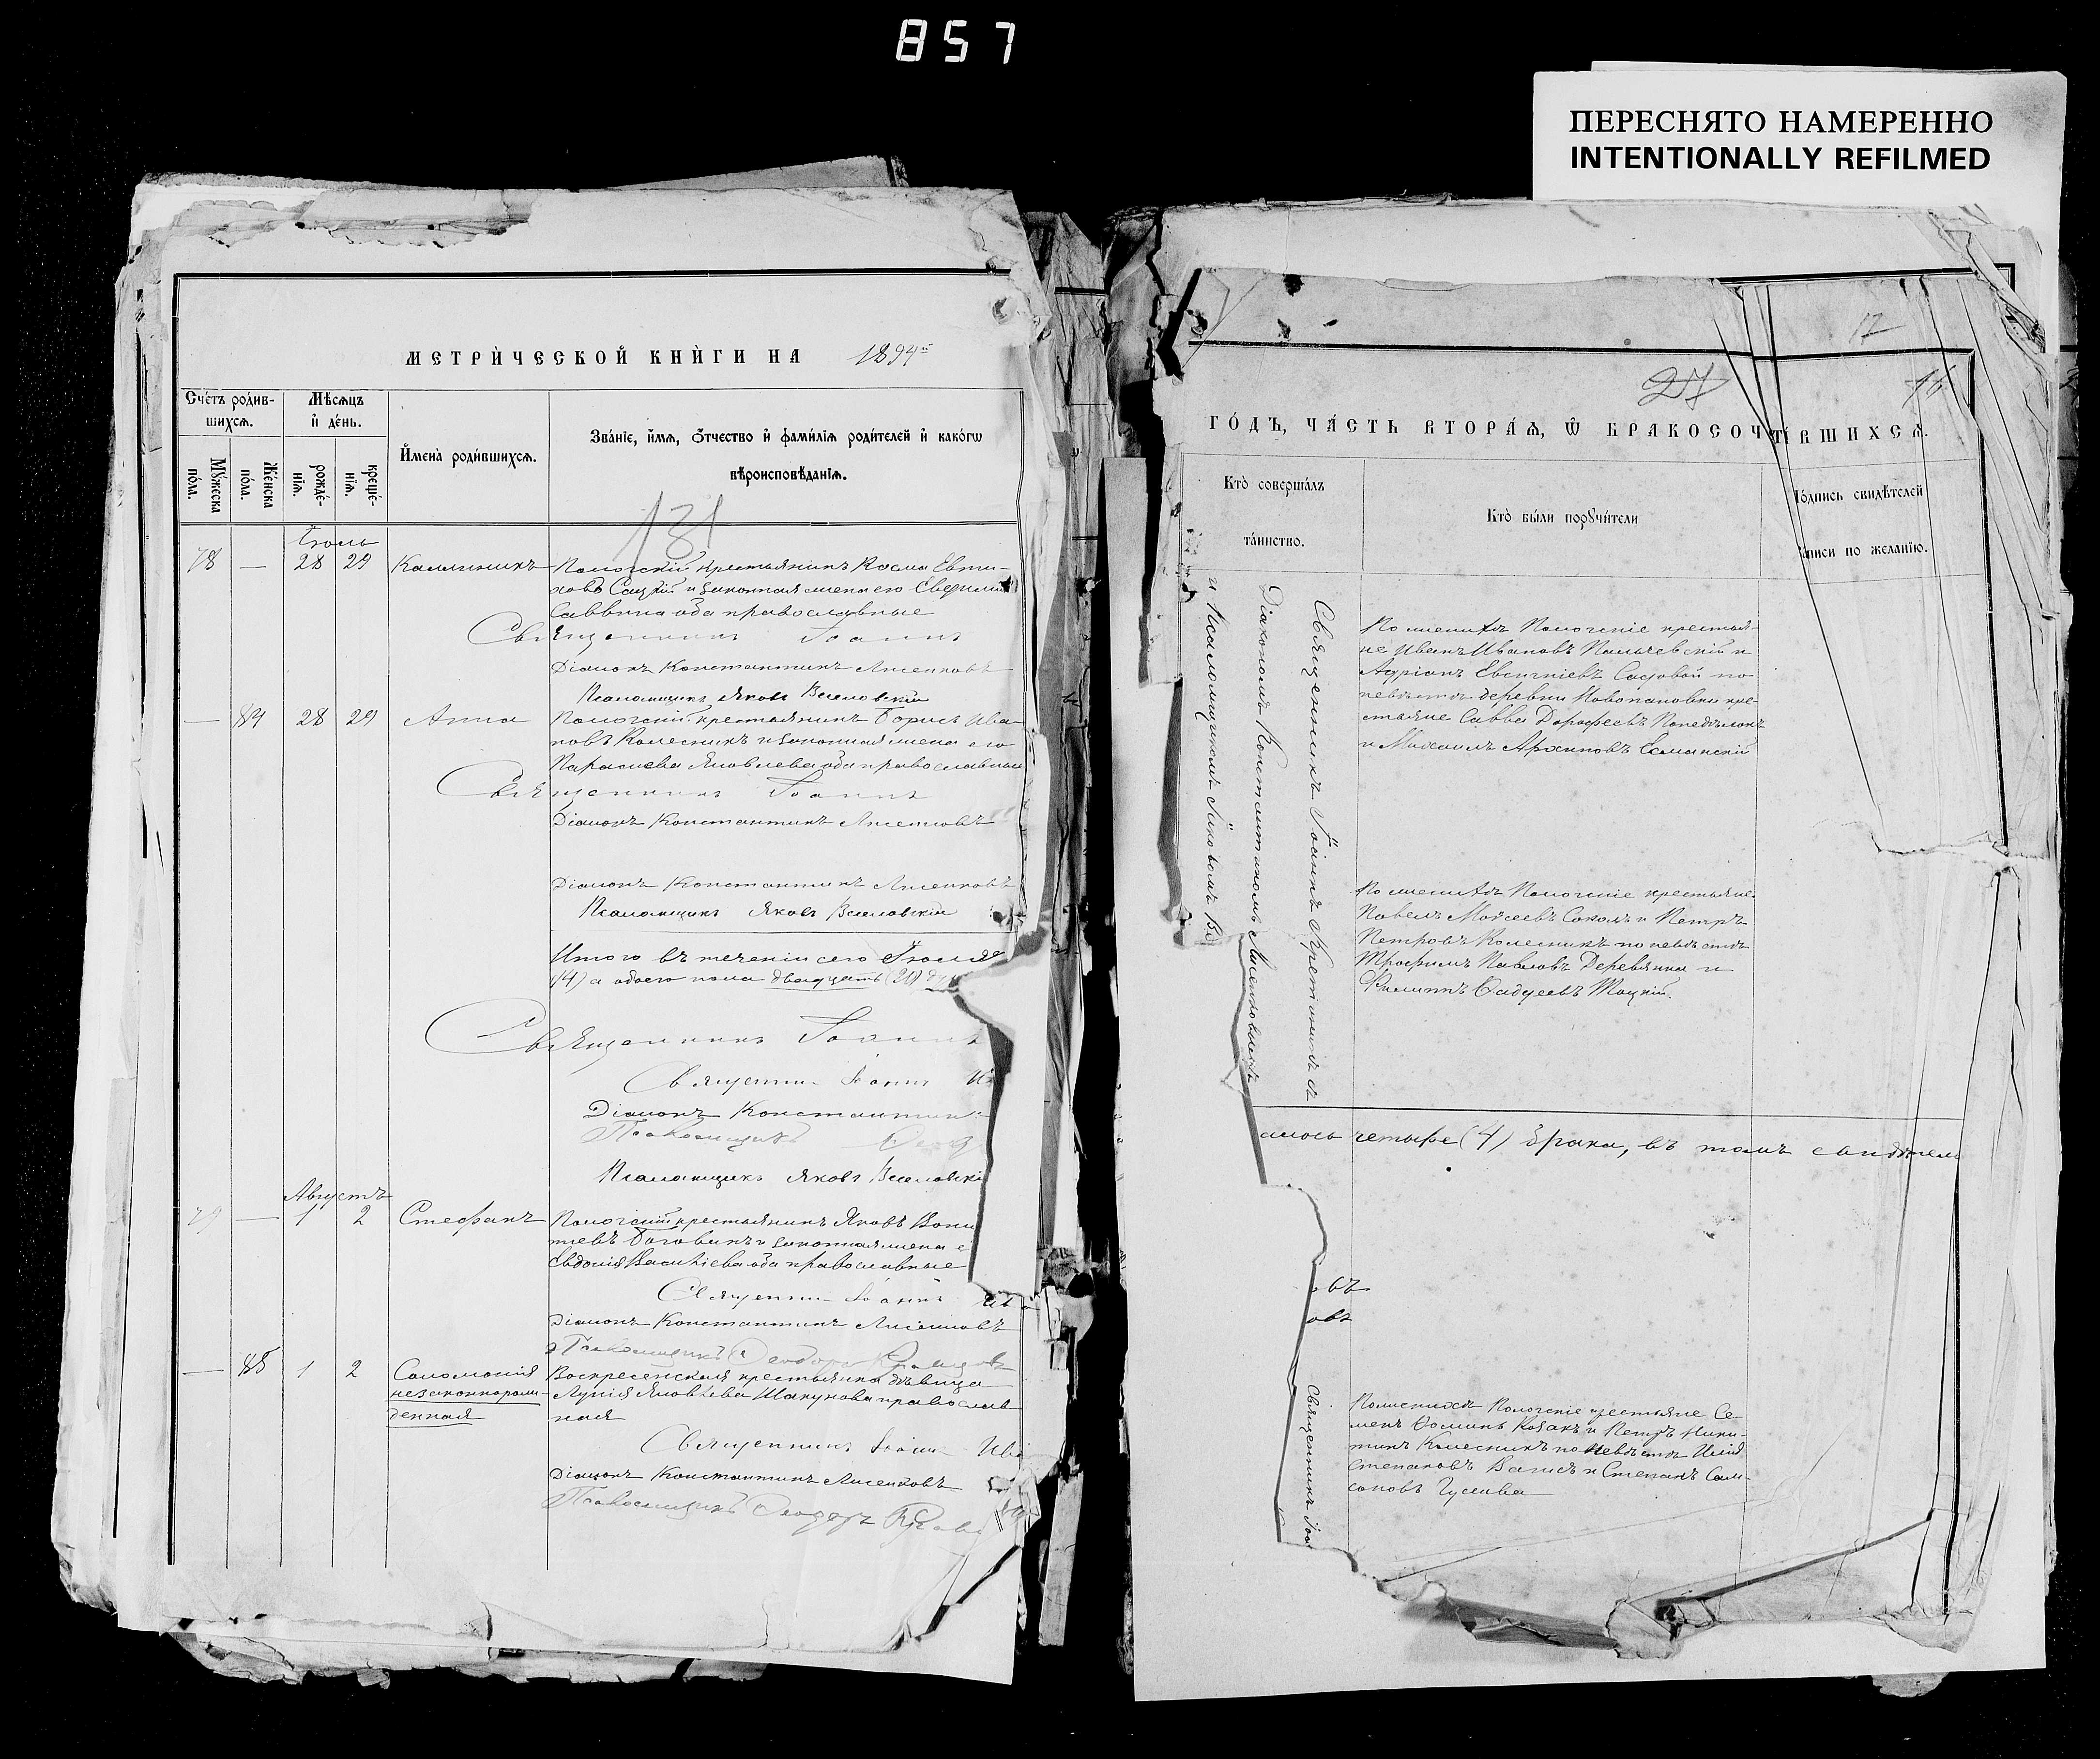 857
ПЕРЕСНЯТО НАМЕРЕННО
INTENTIONALLY REFILMED
МЕТРИЧЕСКОЙ КНИГИ НА 1894
Счетъ родив-
шихся.
Мѣсяцъ
и день.
Имена родившихся.
Званіе, имя, отчество и фамилія родителей и какогѡ
вѣроисповѣданія.
Мужеска
пола.
Женска
пола.
рожде-
нія.
креще-
нія.
131
Іюль
78 — 28 29 Каллиникъ
Пологскій крестьянинъ Косма Евти-
ховъ Сацкій и законная жена его Евфимія
Саввина оба православные
Священникъ Іоаннъ
Діаконъ Константинъ Лисенковъ
Псаломщикъ Яковъ Веселовскій
— 84 28 29 Анна
Пологскій крестьянинъ Борисъ Ива-
новъ Колесникъ и законная жена его
Параскева Яковлева оба православные
Священникъ Іоаннъ
Діаконъ Константинъ Лисенковъ
Діаконъ Константинъ Лисенковъ
Псаломщикъ Яковъ Веселовскій
Итого въ теченіи сего Іюля
(14) а обоего пола двадцать (20)
Священникъ Іоаннъ
Священникъ Іоаннъ
Діаконъ Константинъ
Псаломщикъ
Псаломщикъ Яковъ Веселовскі
Августъ
79 — 1 2 Стефанъ
Пологскій крестьянинъ Яковъ
законная жена
Евдокія Васильева оба православные
Священник Іоаннъ
Діаконъ Константинъ Лисенковъ
Псаломщикъ Ѳеодоръ
— 85 1 2 Соломонія
незаконнорож-
денная
Воскресенская крестьянка дѣвица
Лукія Яковлева Шакунова православ
ная
Священникъ Іоанн
Діаконъ Константинъ Лисенковъ
Псаломщикъ Ѳеодоръ
12
27
16
ГОДЪ, ЧАСТЬ ВТОРАЯ, Ѡ БРАКОСОЧТАВШИХСЯ.
Кто совершалъ
таинство.
Кто были поручители
Подпись свидѣтелей
записи по желанію.
Священникъ Іоаннъ Крет
Діакономъ Константиномъ Лисенковымъ
и Псаломщикомъ Яковомъ Ве
По женихѣ Пологскіе крестья-
не Иванъ Ивановъ Пальчевскій и
Адріанъ Евсигніевъ Садовой по
невѣстѣ деревни Новопавловки кре-
стьяне Савва Дорофеевъ Понедѣлокъ
и Михаилъ Архиповъ Есманскій
По женихѣ Пологскіе крестьяне
Павелъ Моисеевъ Соколъ и Петръ
Петровъ Колесникъ по невѣстѣ
Трофимъ Павловъ Деревянка и
Филиппъ Фадеевъ Тоцкій.
алось четыре (4) брака, въ томъ свидѣтел
овъ
Священникъ Іоа
По женихѣ Пологскіе крестьяне Се-
менъ Ѳоминъ Козакъ и Петръ Ники-
тинъ Колесникъ по невѣстѣ Илія
Степановъ и Степанъ Сам-
соновъ